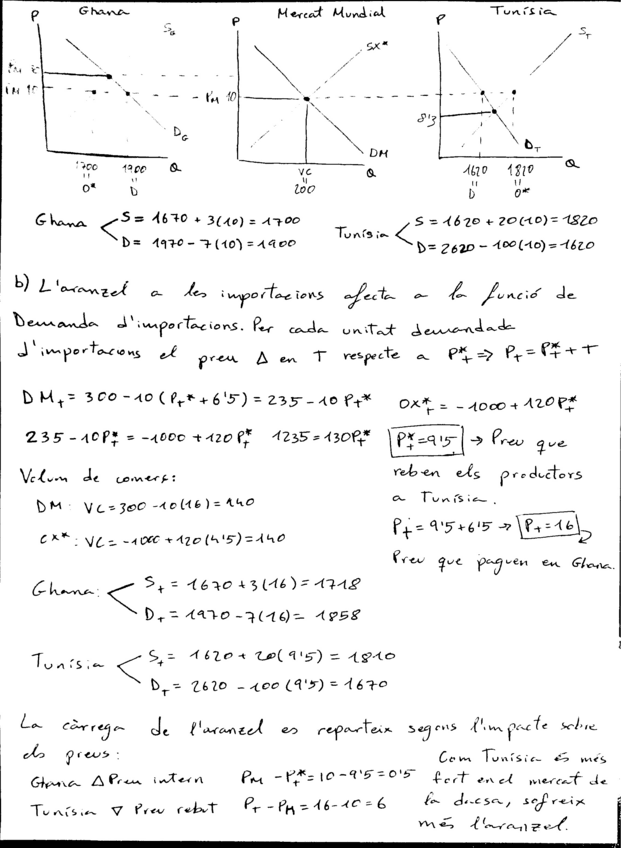 Ghana
Mercat Mundial
Tunísia
P
P
P
S_G
SX*
S_T
P_M 10
P_M 10
8'3
D_G
DM
D_T
1700
1900
Q
VC
Q
1620
1820
Q
O*
D
200
D
O*
Ghana S = 1670 + 3(10) = 1700
D = 1970 - 7(10) = 1900
Tunísia S = 1620 + 20(10) = 1820
D = 2620 - 100(10) = 1620
b) L'aranzel a les importacions afecta a la funció de
Demanda d'importacions. Per cada unitat demandada
d'importacions el preu Δ en T respecte a P_T^* ⇒ P_T = P_T^* + T
DM_T = 300 - 10(P_T^* + 6'5) = 235 - 10P_T^* OX_T^* = -1000 + 120P_T^*
235 - 10P_T^* = -1000 + 120P_T^* 1235 = 130P_T^* P_T^* = 9'5 → Preu que
reben els productors
a Tunísia.
Volum de comerç:
DM: VC = 300 - 10(16) = 140
OX*: VC = -1000 + 120(9'5) = 140
P_T = 9'5 + 6'5 → P_T = 16
Preu que paguen en Ghana.
Ghana: S_T = 1670 + 3(16) = 1718
D_T = 1970 - 7(16) = 1858
Tunísia S_T = 1620 + 20(9'5) = 1810
D_T = 2620 - 100(9'5) = 1670
La càrrega de l'aranzel es reparteix segons l'impacte sobre
els preus:
Ghana Δ Preu intern P_M - P_T^* = 10 - 9'5 = 0'5
Tunísia ∇ Preu rebut P_T - P_M = 16 - 10 = 6
Com Tunísia és més
fort en el mercat de
la dacsa, sofreix
més l'aranzel.